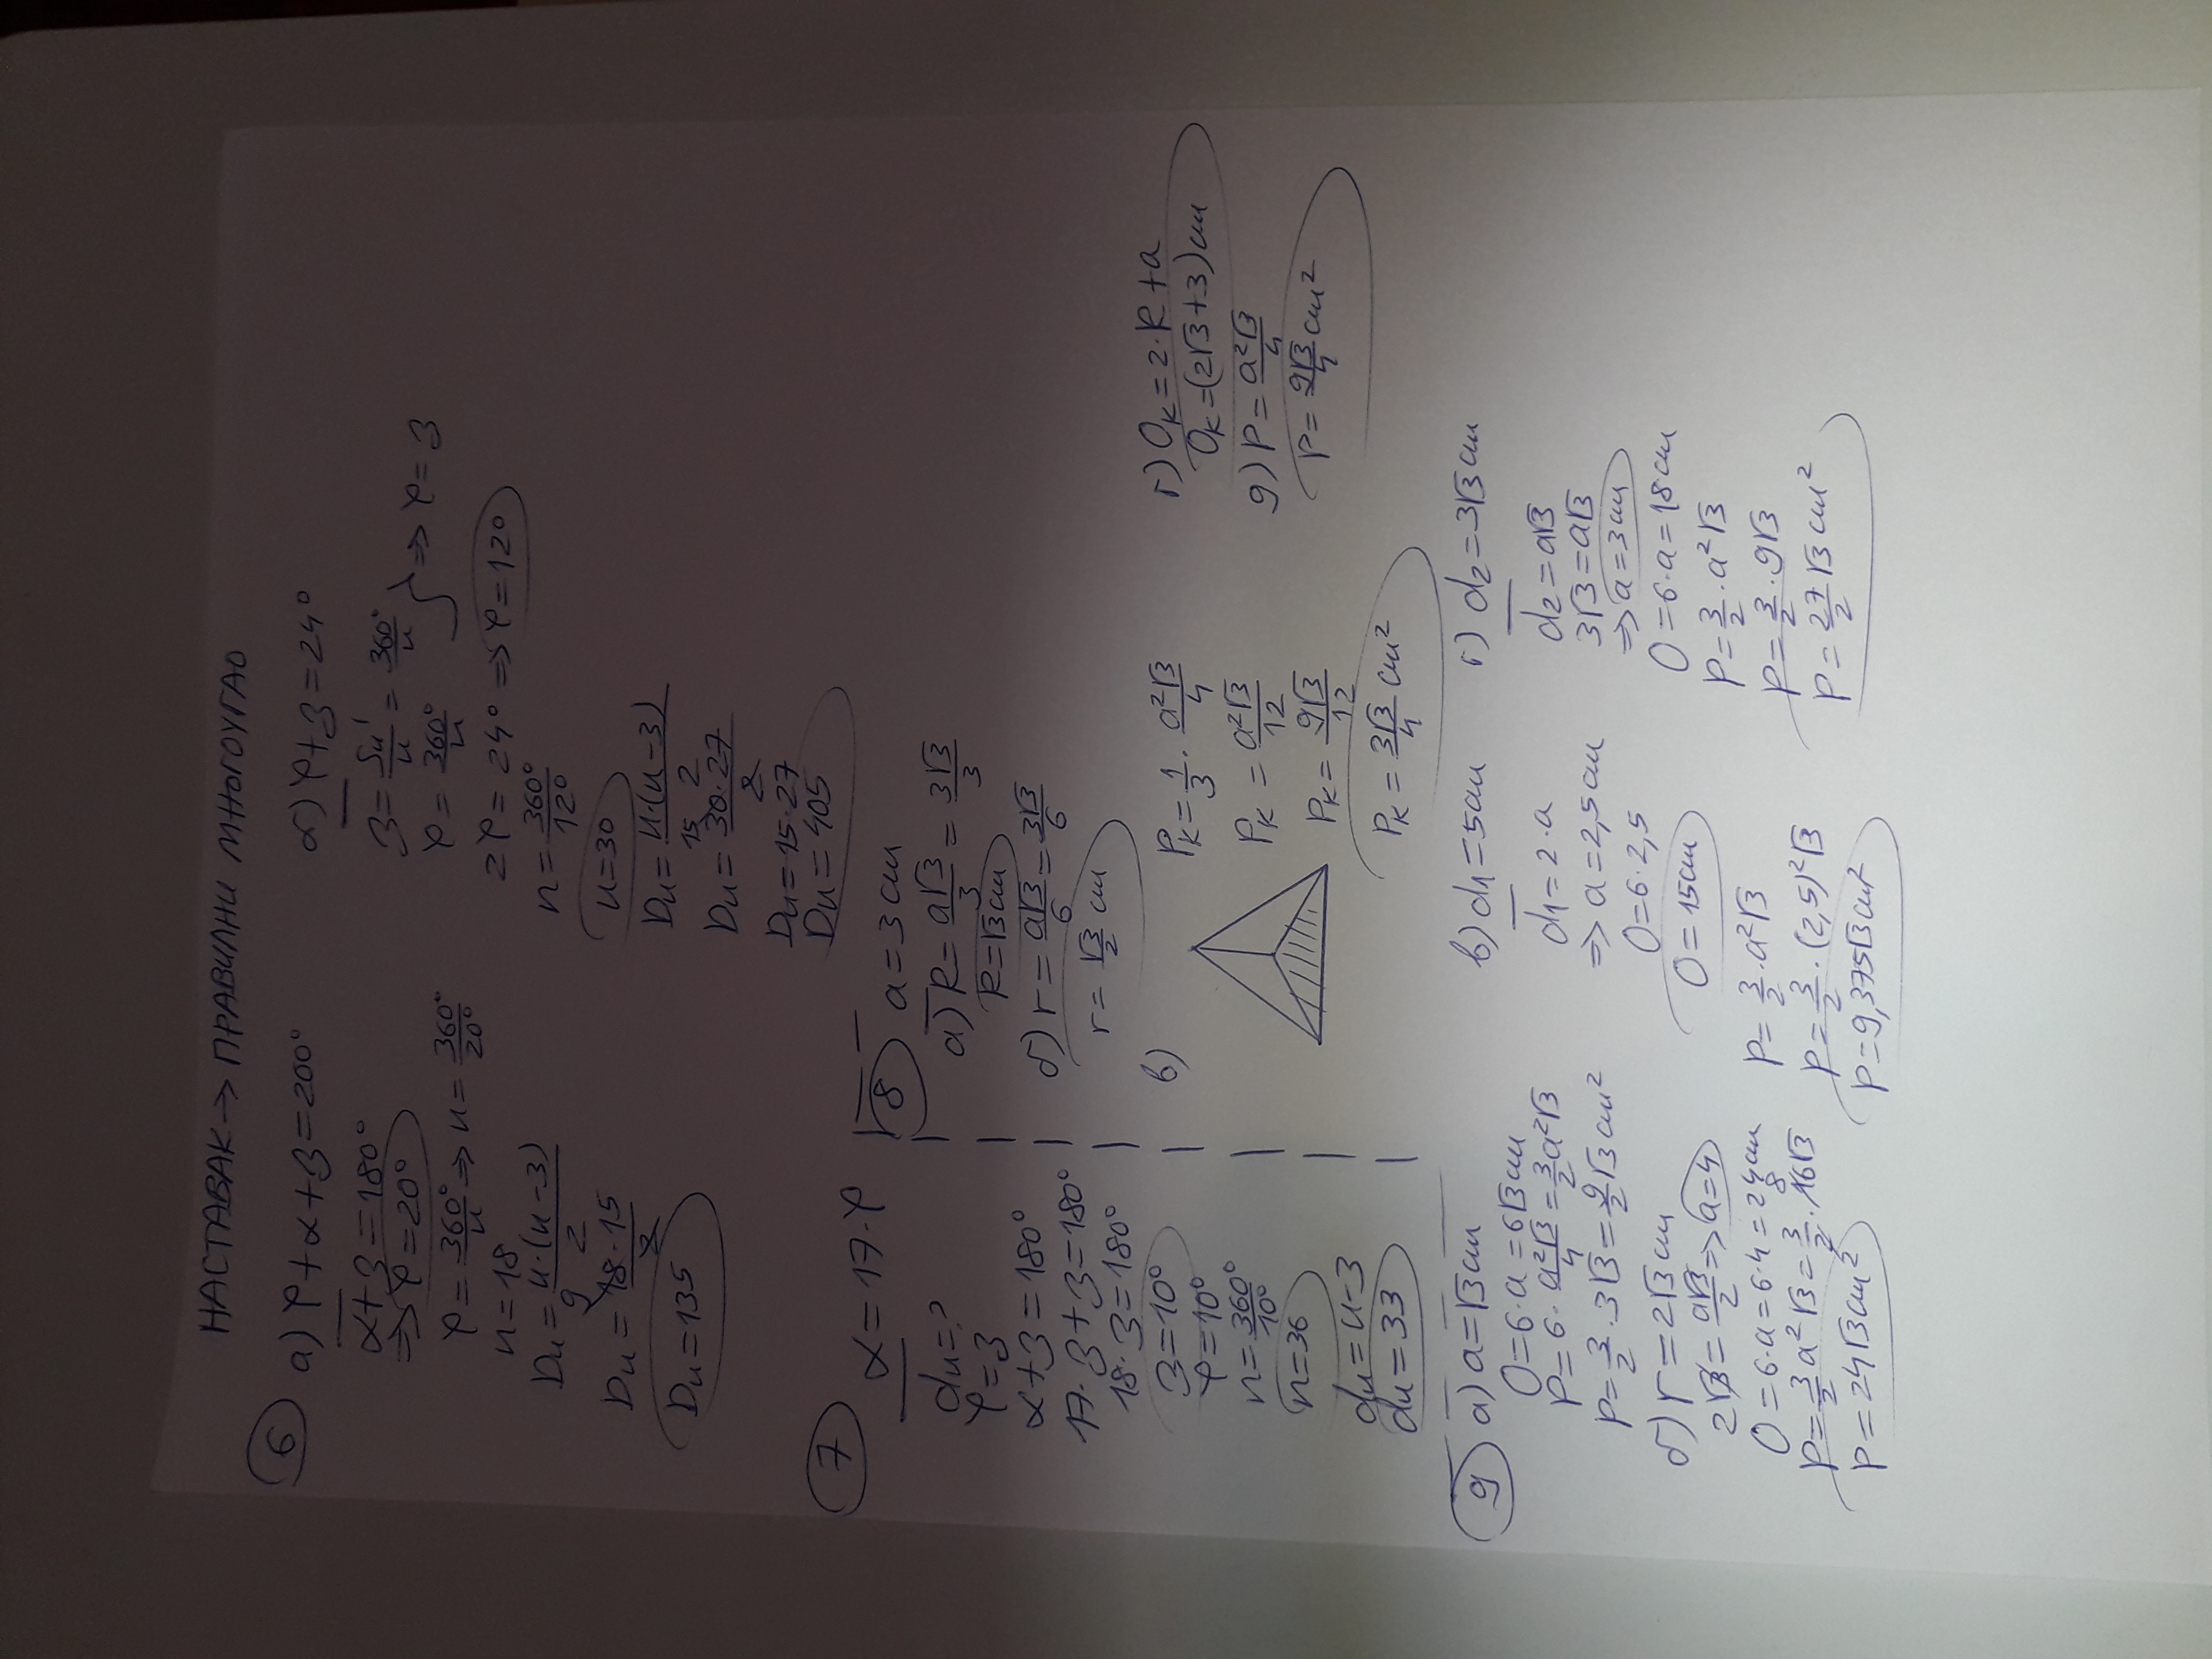 НАСТАВАК → ПРАВИЛНИ МНОГОУГАО
6
а) φ+α+β=200°
α+β=180°
⇒ φ=20°
φ=360°/n ⇒ n=360°/20°
n=18
Dn=n·(n-3)/2
Dn=18·15/2 9
Dn=135
б) φ+β=24°
β=Sn'/n=360°/n
φ=360°/n } ⇒ φ=β
2φ=24° ⇒ φ=12°
n=360°/12°
n=30
Dn=n·(n-3)/2
Dn=30·27/2 15
Dn=15·27
Dn=405
7
α=17·φ
dn=?
φ=β
α+β=180°
17·β+β=180°
18·β=180°
β=10°
φ=10°
n=360°/10°
n=36
dn=n-3
dn=33
8
a=3cm
а) R=a√3/3=3√3/3
R=√3cm
б) r=a√3/6=3√3/6
r=√3/2 cm
в)
Pк=1/3·a²√3/4
Pк=a²√3/12
Pк=9√3/12
Pк=3√3/4 cm²
г) Oк=2·R+a
Oк=(2√3+3)cm
g) P=a²√3/4
P=9√3/4 cm²
9
а) a=√3cm
O=6·a=6√3cm
P=6·a²√3/4=3/2a²√3
P=3/2·3√3=9/2√3cm²
б) r=2√3cm
2√3=a√3/2 ⇒ a=4
O=6·a=6·4=24cm
P=3/2a²√3=3/2·16√3 8
P=24√3cm²
в) d1=5cm
d1=2·a
⇒ a=2,5cm
O=6·2,5
O=15cm
P=3/2·a²√3
P=3/2·(2,5)²√3
P=9,375√3cm²
г) d2=3√3cm
d2=a√3
3√3=a√3
⇒ a=3cm
O=6·a=18cm
P=3/2·a²√3
P=3/2·9√3
P=27/2√3cm²